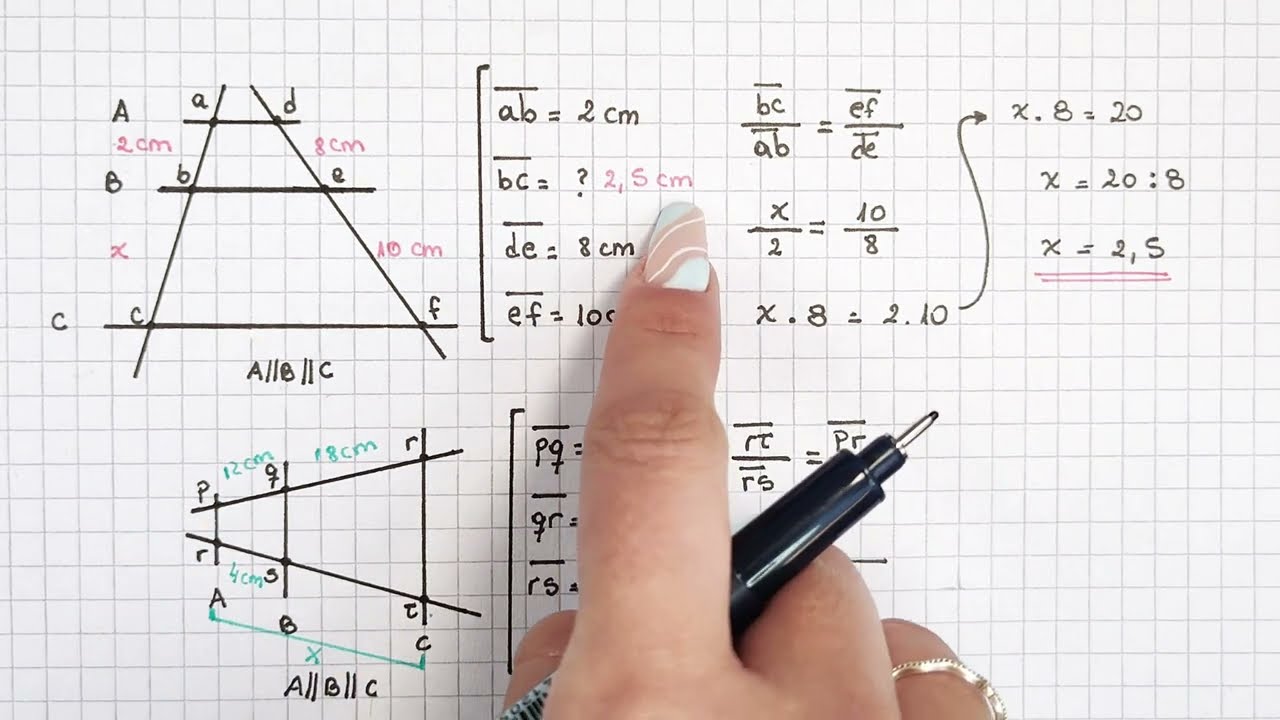 a d
A
2 cm 8 cm
b e
B
x 10 cm
c f
C
A//B//C
ab = 2 cm
bc = ? 2,5 cm
de = 8 cm
ef = 10
bc/ab = ef/de
x/2 = 10/8
x . 8 = 2.10
x . 8 = 20
x = 20 : 8
x = 2,5
12 cm 18 cm
p q r
r s t
4 cm
A B C
x
A//B//C
pq =
qr =
rs =
rt/rs = pr